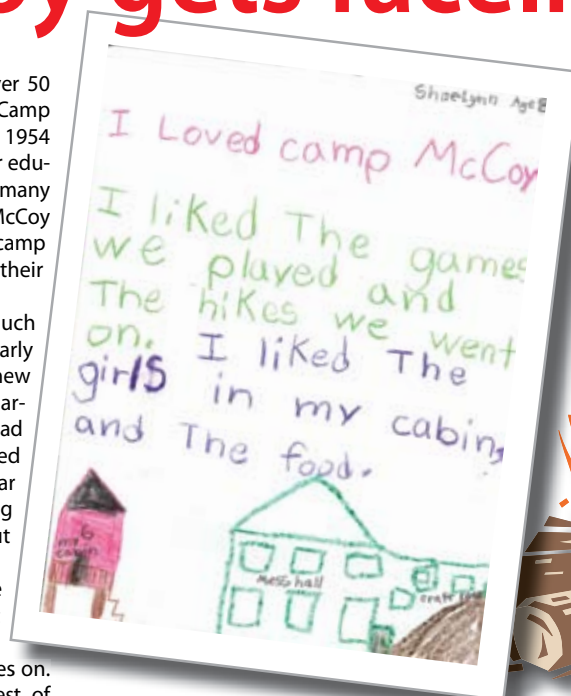 oy gets faceli
er 50
Camp
1954
r edu-
many
McCoy
camp
their
uch
arly
new
ar-
ad
ed
ar
g
ut
e
es on.
est of
Shaelynn Age 8
I Loved camp McCoy
I liked The games
we played and
The hikes we went
on. I liked The
girls in my cabin,
and The food.
6
my
cabin
Mess hall